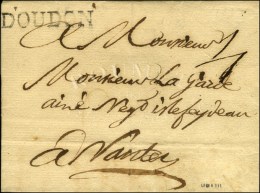 D'OUDON
A Monsieur
Monsieur La Garde
ainé Negt islefeydeau
A Nantes